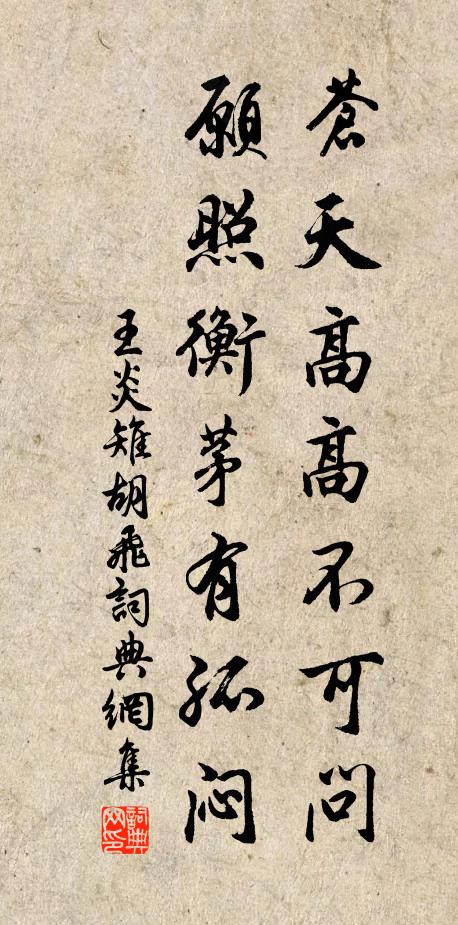 蒼天高高不可問
願照衡茅有孤悶
王炎雉胡飛詞典網集
詞典网印